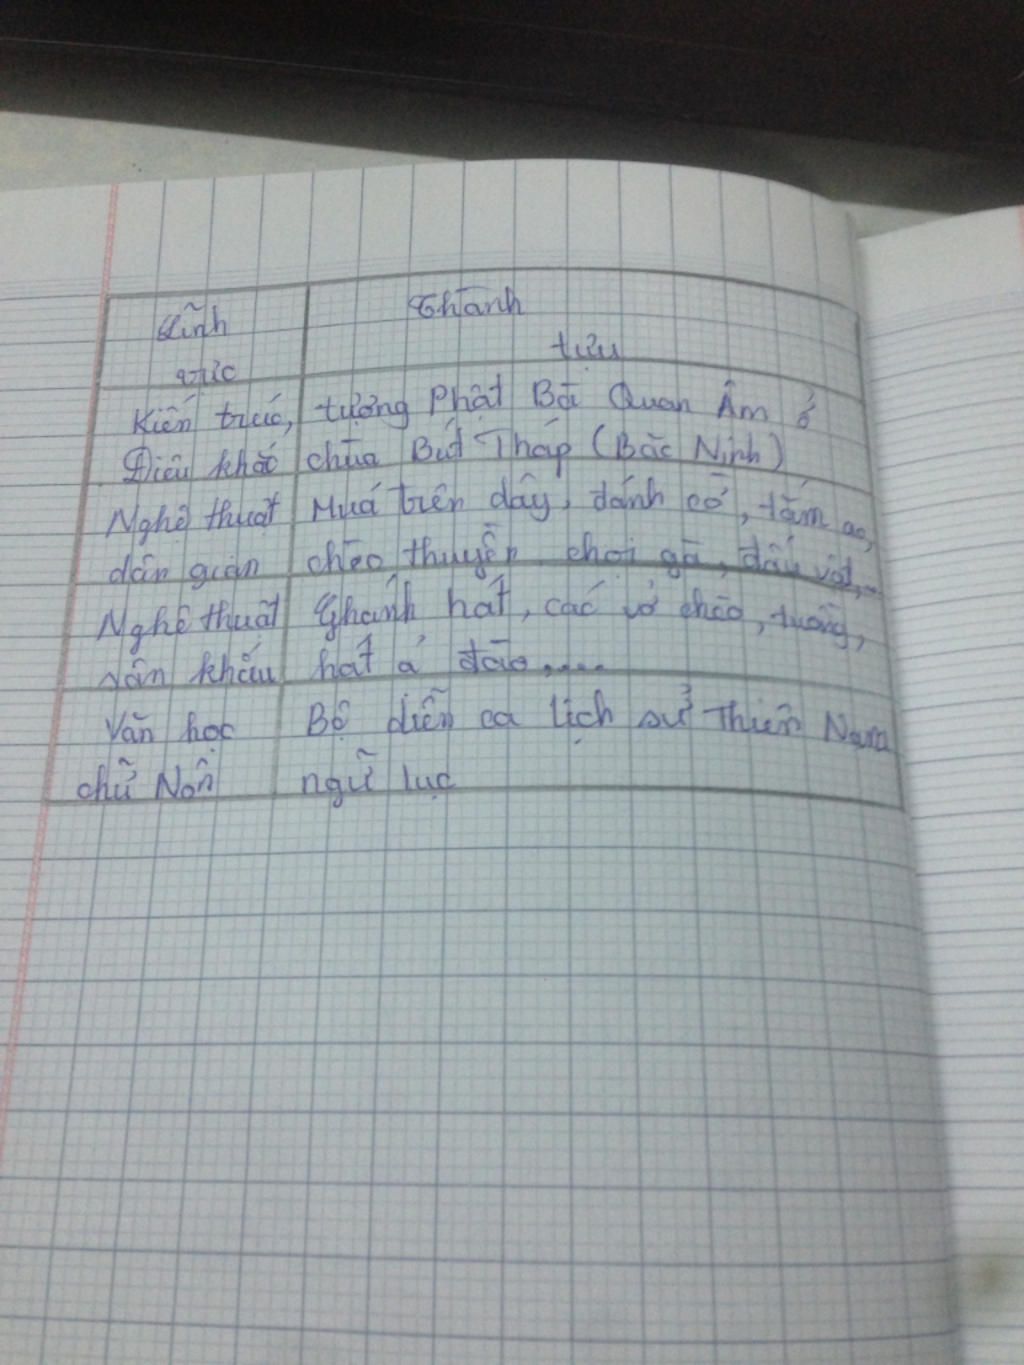 Lĩnh vực
Thành tựu
Kiến trúc, tượng Phật Bà Quan Âm ở
Điêu khắc chùa Bút Tháp (Bắc Ninh)
Nghệ thuật Múa trên dây, đánh cờ, tắm ao,
dân gian chèo thuyền chọi gà, đấu vật,...
Nghệ thuật Thánh hát, các vở chèo, tuồng,
sân khấu hát ả đào,....
Văn học Bộ diễn ca lịch sử Thiên Nam
chữ Nôn ngữ lục